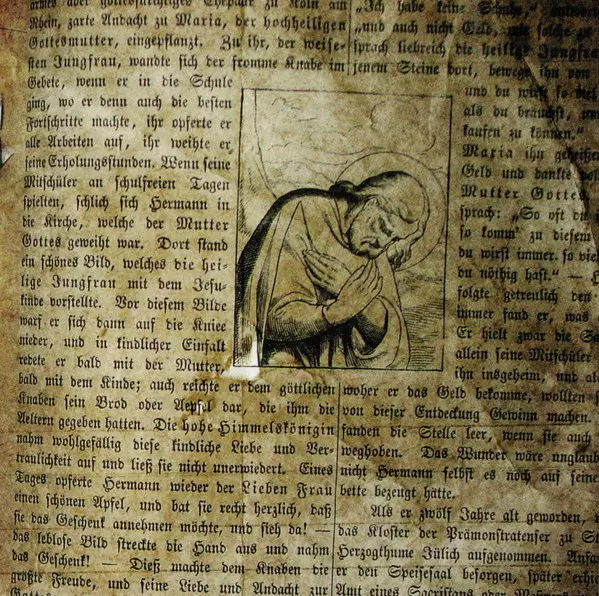 armes aber gottesfürchtiges Ehepaar zu Köln am
Rhein, zarte Andacht zu Maria, der hochheiligen
Gottesmutter, eingepflanzt. Zu ihr, der weise-
sten Jungfrau, wandte sich der fromme Knabe im
Gebete, wenn er in die Schule
ging, wo er denn auch die besten
Fortschritte machte, ihr opferte er
alle Arbeiten auf, ihr weihte er
seine Erholungsstunden. Wenn seine
Mitschüler an schulfreien Tagen
spielten, schlich sich Hermann in
die Kirche, welche der Mutter
Gottes geweiht war. Dort stand
ein schönes Bild, welches die hei-
lige Jungfrau mit dem Jesu-
kinde vorstellte. Vor diesem Bilde
warf er sich dann auf die Kniee
nieder, und in kindlicher Einfalt
redete er bald mit der Mutter,
bald mit dem Kinde; auch reichte er dem göttlichen
Knaben sein Brod oder Aepfel dar, die ihm die
Aeltern gegeben hatten. Die hohe Himmelskönigin
nahm wohlgefällig diese kindliche Liebe und Ver-
traulichkeit auf und ließ sie nicht unerwiedert. Eines
Tages opferte Hermann wieder der Lieben Frau
einen schönen Apfel, und bat sie recht herzlich, daß
sie das Geschenk annehmen möchte, und sieh da! —
das leblose Bild streckte die Hand aus und nahm
das Geschenk! — Dieß machte dem Knaben die
größte Freude, und seine Liebe und Andacht zur
„Ich habe keine Schuhe,“
„und auch nicht Geld,
sprach liebreich die heilige Jungfrau
jenem Steine dort, bewege ihn von
und du wirst so viel
als du brauchst, um
kaufen zu können.“
Maria ihn geheißen
Geld und dankte
Mutter Gottes
sprach: „So oft du
so komm' zu diesem
du wirst immer so viel
du nöthig hast.“ —
folgte getreulich den
immer fand er, was
Er hielt zwar die
allein seine Mitschüler
ihn insgeheim, und
woher er das Geld bekomme, wollten
von dieser Entdeckung Gewinn machen.
fanden die Stelle leer, wenn sie auch
weghoben. Das Wunder wäre
nicht Hermann selbst es noch auf seinem
bette bezeugt hätte.
Als er zwölf Jahre alt geworden,
das Kloster der Prämonstratenser zu
Herzogthume Jülich aufgenommen.
er den Speisesaal besorgen, später
Amt eines Sacristans oder